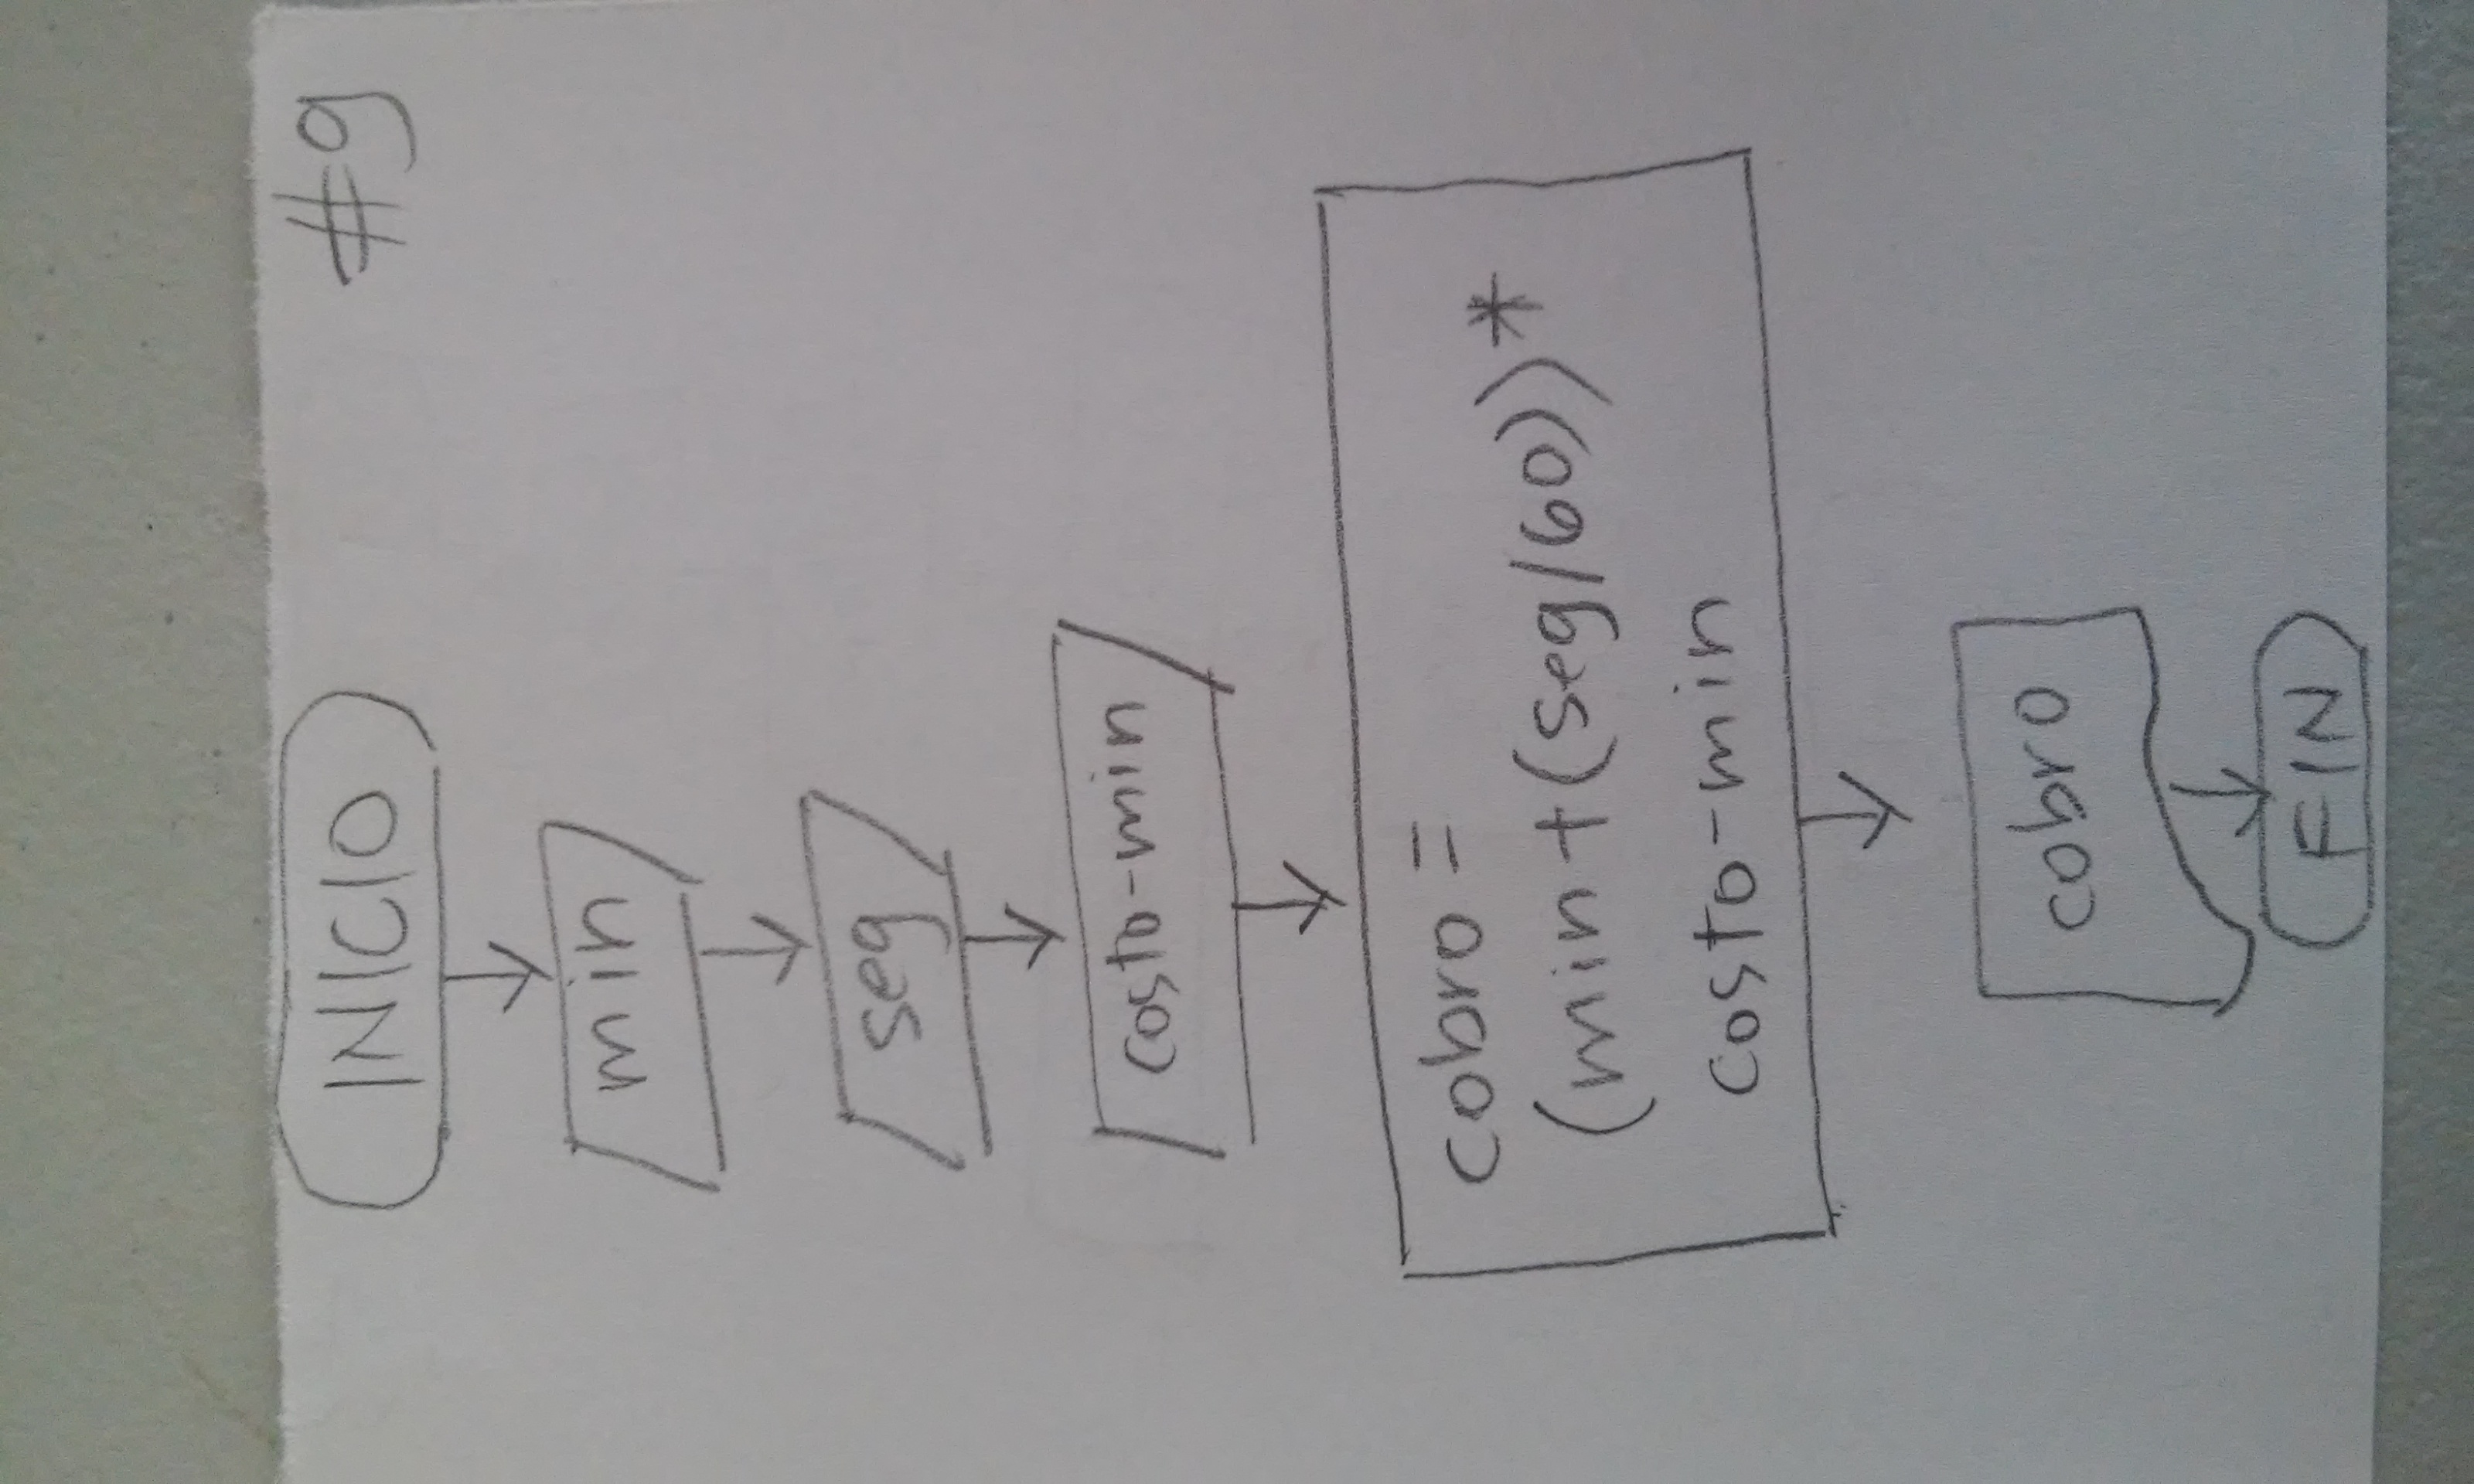 #9
INICIO
min
seg
costo-min
cobro =
(min+(seg/60))*
costo-min
cobro
FIN